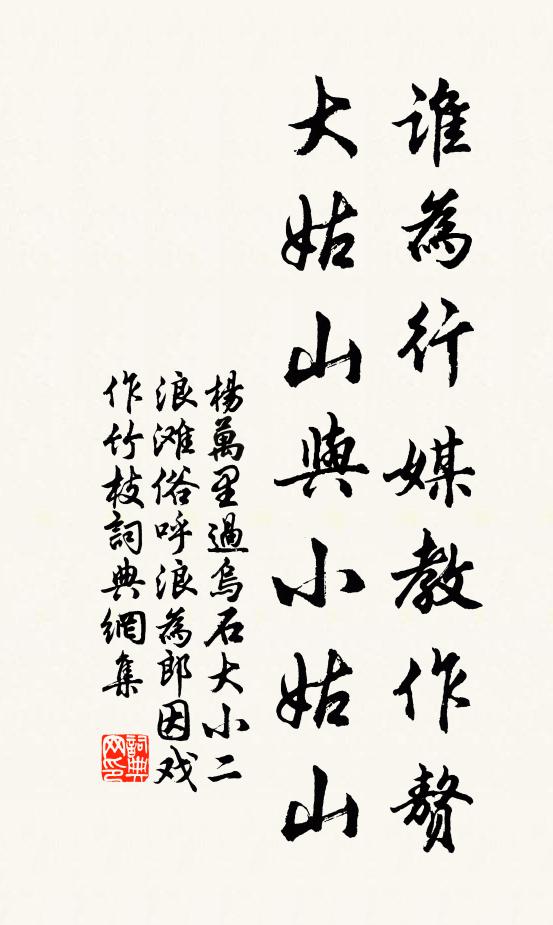 誰為行媒教作贅
大姑山與小姑山
楊萬里過烏石大小二
浪滩俗呼浪為郎因戏
作竹枝詞典網集
詞典网印